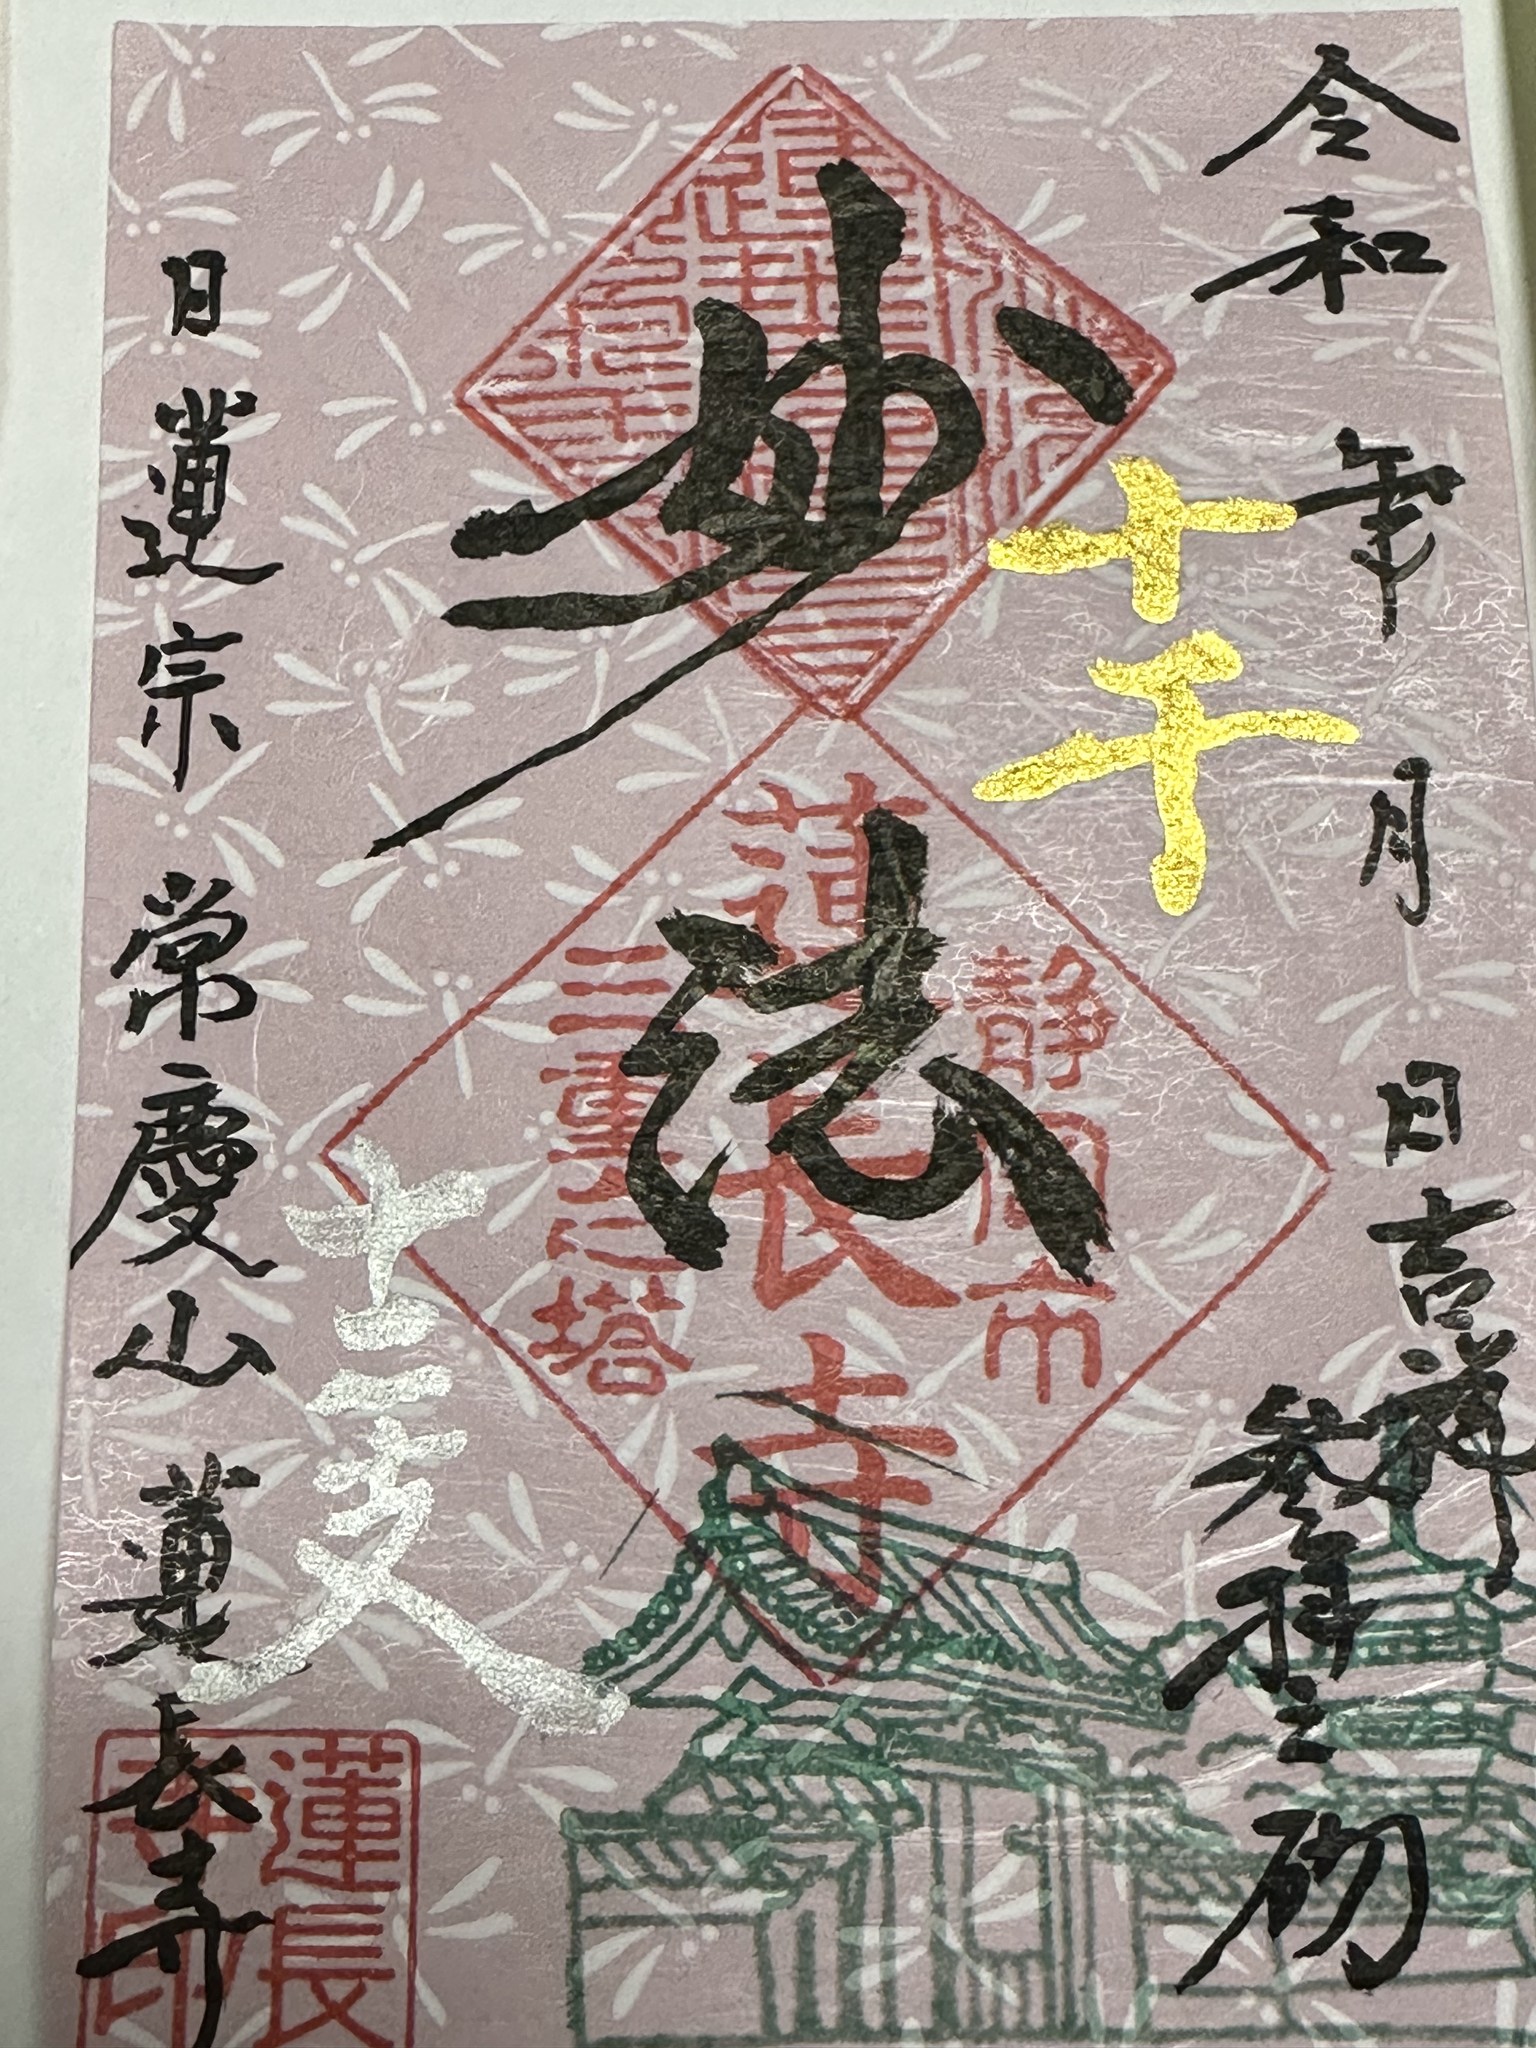 令和 年 月 日吉祥
参拝之砌
十干
妙法
静岡市
蓮長寺
三重之塔
十二支
日蓮宗 常慶山 蓮長寺
蓮長寺印